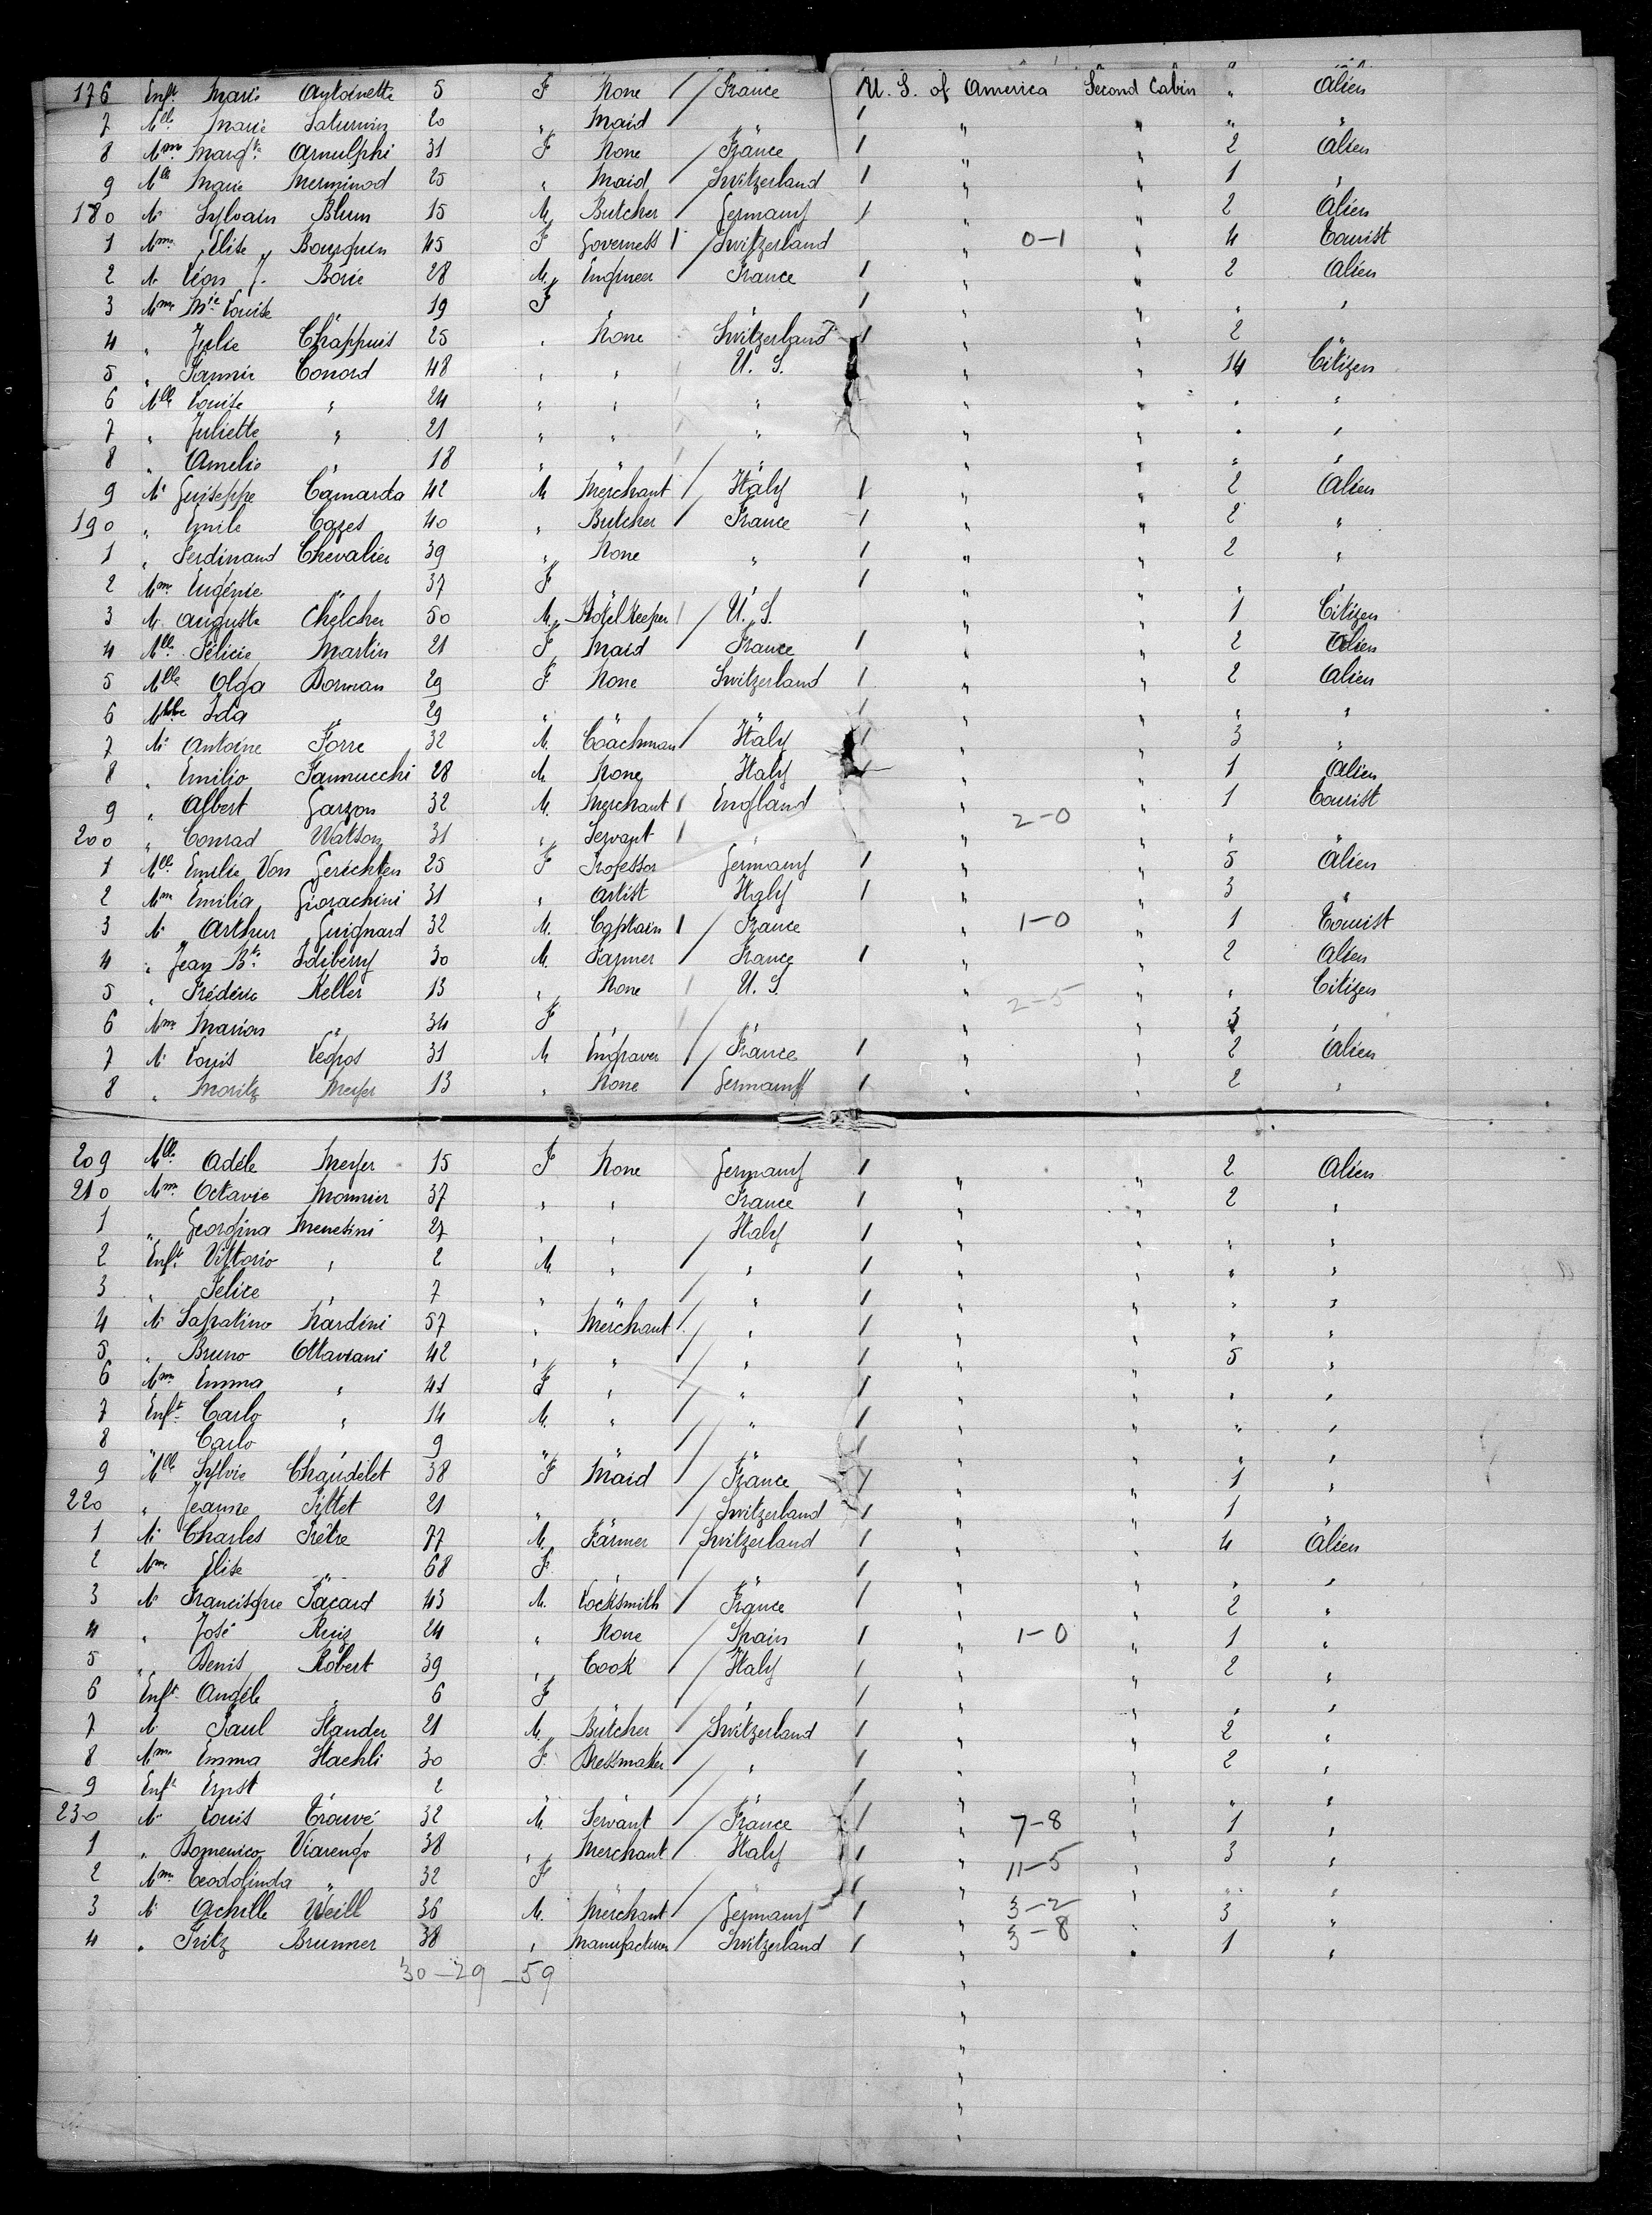 176 Enft. Marie Antoinette 5 F None / France U. S. of America Second Cabin " Alien
7 Mlle Marie Saturnin 20 " Maid / " 1 " " " "
8 Mme Margte. Arnulphi 31 F None / France 1 " " 2 Alien
9 Mlle Marie Merminod 25 " Maid / Switzerland 1 " " 1 "
180 M. Sylvain Blum 15 M. Butcher / Germany 1 " " 2 Alien
1 Mme Elise Bourquin 45 F Governess 1 / Switzerland " 0-1 " 4 Tourist
2 M. Léon J. Borie 28 M. Engineer / France 1 " " 2 Alien
3 Mme Mie Louise " 19 F " " 1 " " " "
4 " Julie Chappuis 25 " None / Switzerland 1 " " 2 "
5 " Fannie Conord 48 " " / U. S. " " 14 Citizen
6 Mlle Louise " 24 " " / " " " " "
7 " Juliette " 21 " " / " " " " "
8 " Amelie " 18 " " / " " " " "
9 M. Guiseppe Camarda 42 M Merchant / Italy 1 " " 2 Alien
190 " Emile Cazes 40 " Butcher / France 1 " " 2 "
1 " Ferdinand Chevalier 39 " None " 1 " " 2 "
2 Mme Eugénie " 37 F " " 1 " " " "
3 M. Auguste Chelcher 50 M. Hotel Keeper / U. S. " " 1 Citizen
4 Mlle Félicie Martin 21 F Maid / France 1 " " 2 Alien
5 Mlle Olga Borman 29 F. None Switzerland 1 " " 2 Alien
6 Mlle Ida " 29 " " / " 1 " " " "
7 M. Antoine Forre 32 M. Coachman / Italy 1 " " 3 "
8 " Emilio Fannucchi 28 M None / Italy 1 " " 1 Alien
9 " Albert Garzon 32 M. Merchant 1 England " 2-0 " 1 Tourist
200 " Conrad Watson 31 " Servant 1 " " " " "
1 Mlle Emilie Von Gerichten 25 F Professor Germany 1 " " 5 Alien
2 Mme Emilia Giorachini 31 " Artist / Italy 1 " " 3 "
3 M. Arthur Guignard 32 M. Captain 1 / France " 1-0 " 1 Tourist
4 " Jean Bte. Idiberry 30 M. Farmer / France 1 " " 2 Alien
5 " Frédéric Keller 13 " None / U. S. " 2-5 " " Citizen
6 Mme Marion " 34 F " / " " " 3 "
7 M. Louis Legros 31 M Engraver / France 1 " " 2 Alien
8 " Moritz Meyer 13 " None / Germany 1 " " 2 "
209 Mlle Adèle Meyer 15 F None Germany 1 " " 2 Alien
210 Mme Octavie Monnier 37 " " / France 1 " " 2 "
1 " Georgina Menesini 27 " " / Italy 1 " " " "
2 Enft. Vittorio " 2 M. " / " 1 " " " "
3 " Felice " 7 " " / " 1 " " " "
4 M. Sapatino Nardini 57 " Merchant / " 1 " " " "
5 " Bruno Ottaviani 42 " " / " 1 " " 5 "
6 Mme Emma " 41 F " / " 1 " " " "
7 Enft. Carlo " 14 M. " / " 1 " " " "
8 " Carlo " 9 " " / " 1 " " " "
9 Mlle Sylvie Chaudelet 38 F Maid / France 1 " " 1 "
220 " Jeanne Pittet 21 " " / Switzerland 1 " " 1 "
1 M. Charles Prêtre 77 M. Farmer / Switzerland 1 " " 4 Alien
2 Mme Elise " 68 F. " " 1 " " " "
3 M. Francisque Pacard 43 M. Locksmith / France 1 " " 2 "
4 " José Ruiz 24 " None / Spain 1 " 1-0 " 1 "
5 " Denis Robert 39 " Cook / Italy 1 " " 2 "
6 Enft. Angèle " 6 F " / " 1 " " " "
7 M. Paul Stander 21 M. Butcher / Switzerland 1 " " 2 "
8 Mme Emma Staehli 30 F. Dressmaker / " 1 " " 2 "
9 Enft Ernst " 2 " " / " 1 " " " "
230 M. Louis Trouvé 32 M. Servant / France 1 " 7-8 " 1 "
1 " Domenico Viarengo 38 " Merchant / Italy 1 " 11-5 " 3 "
2 Mme Teodolinda " 32 F " / " 1 " " " "
3 M. Achille Weill 36 M. Merchant / Germany 1 " 3-2 " 3 "
4 " Fritz Brunner 38 " Manufacturer / Switzerland 1 " 3-8 " 1 "
30-29-59